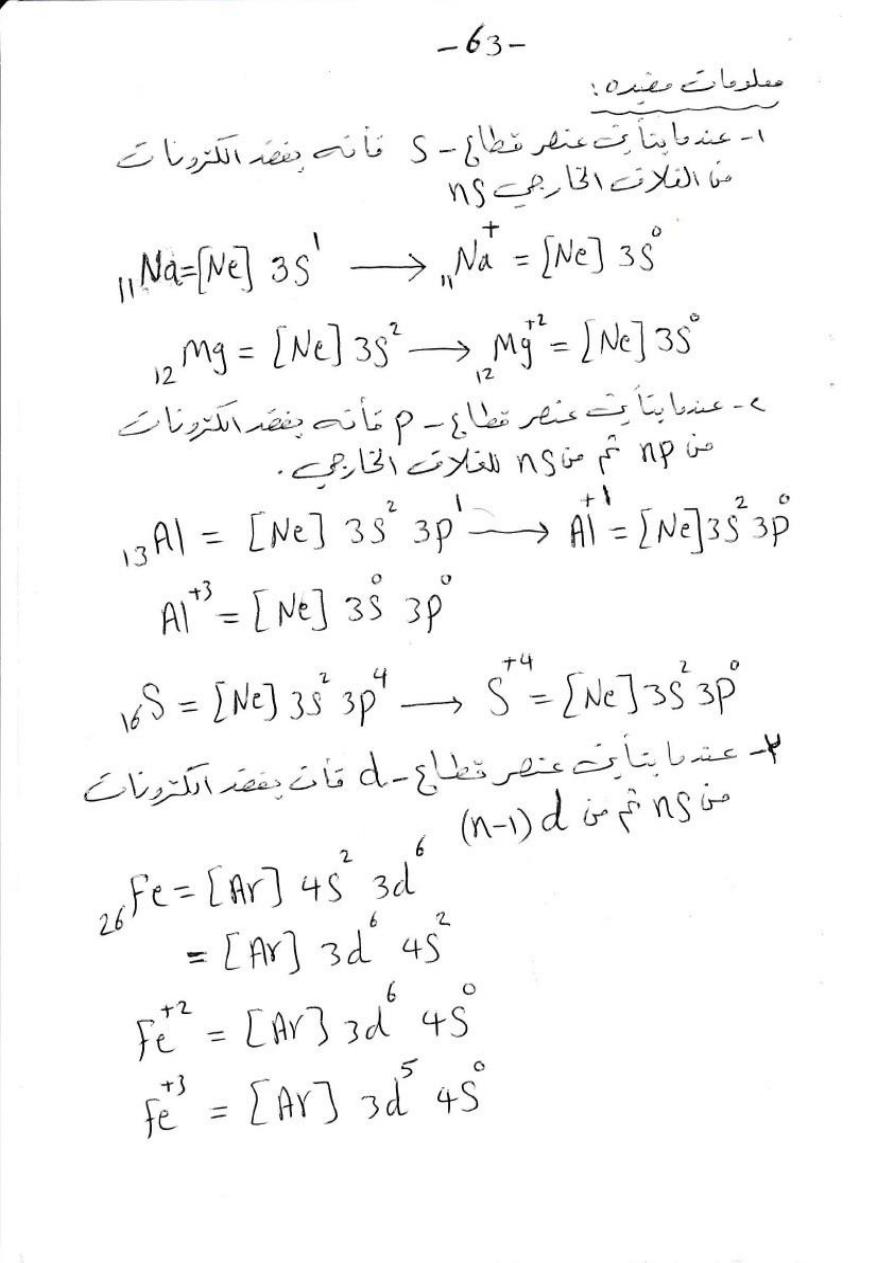 -63-
معلومات مفيده:
١- عندما يتأين عنصر قطاع - S فأنه يفقد الكترونات
من الغلاف الخارجي ns
₁₁Na=[Ne] 3S¹ ⟶ ₁₁Na⁺ = [Ne] 3S⁰
₁₂Mg = [Ne] 3S² ⟶ ₁₂Mg⁺² = [Ne] 3S⁰
٢- عندما يتأين عنصر قطاع - p فأنه يفقد الكترونات
من np ثم من ns للغلاف الخارجي.
₁₃Al = [Ne] 3S² 3p¹ ⟶ Al⁺¹ = [Ne] 3S² 3p⁰
Al⁺³ = [Ne] 3S⁰ 3p⁰
₁₆S = [Ne] 3S² 3p⁴ ⟶ S⁺⁴ = [Ne] 3S² 3p⁰
٣- عندما يتأين عنصر قطاع - d فأن يفقد الكترونات
من ns ثم من (n-1)d
₂₆Fe = [Ar] 4S² 3d⁶
= [Ar] 3d⁶ 4S²
Fe⁺² = [Ar] 3d⁶ 4S⁰
Fe⁺³ = [Ar] 3d⁵ 4S⁰